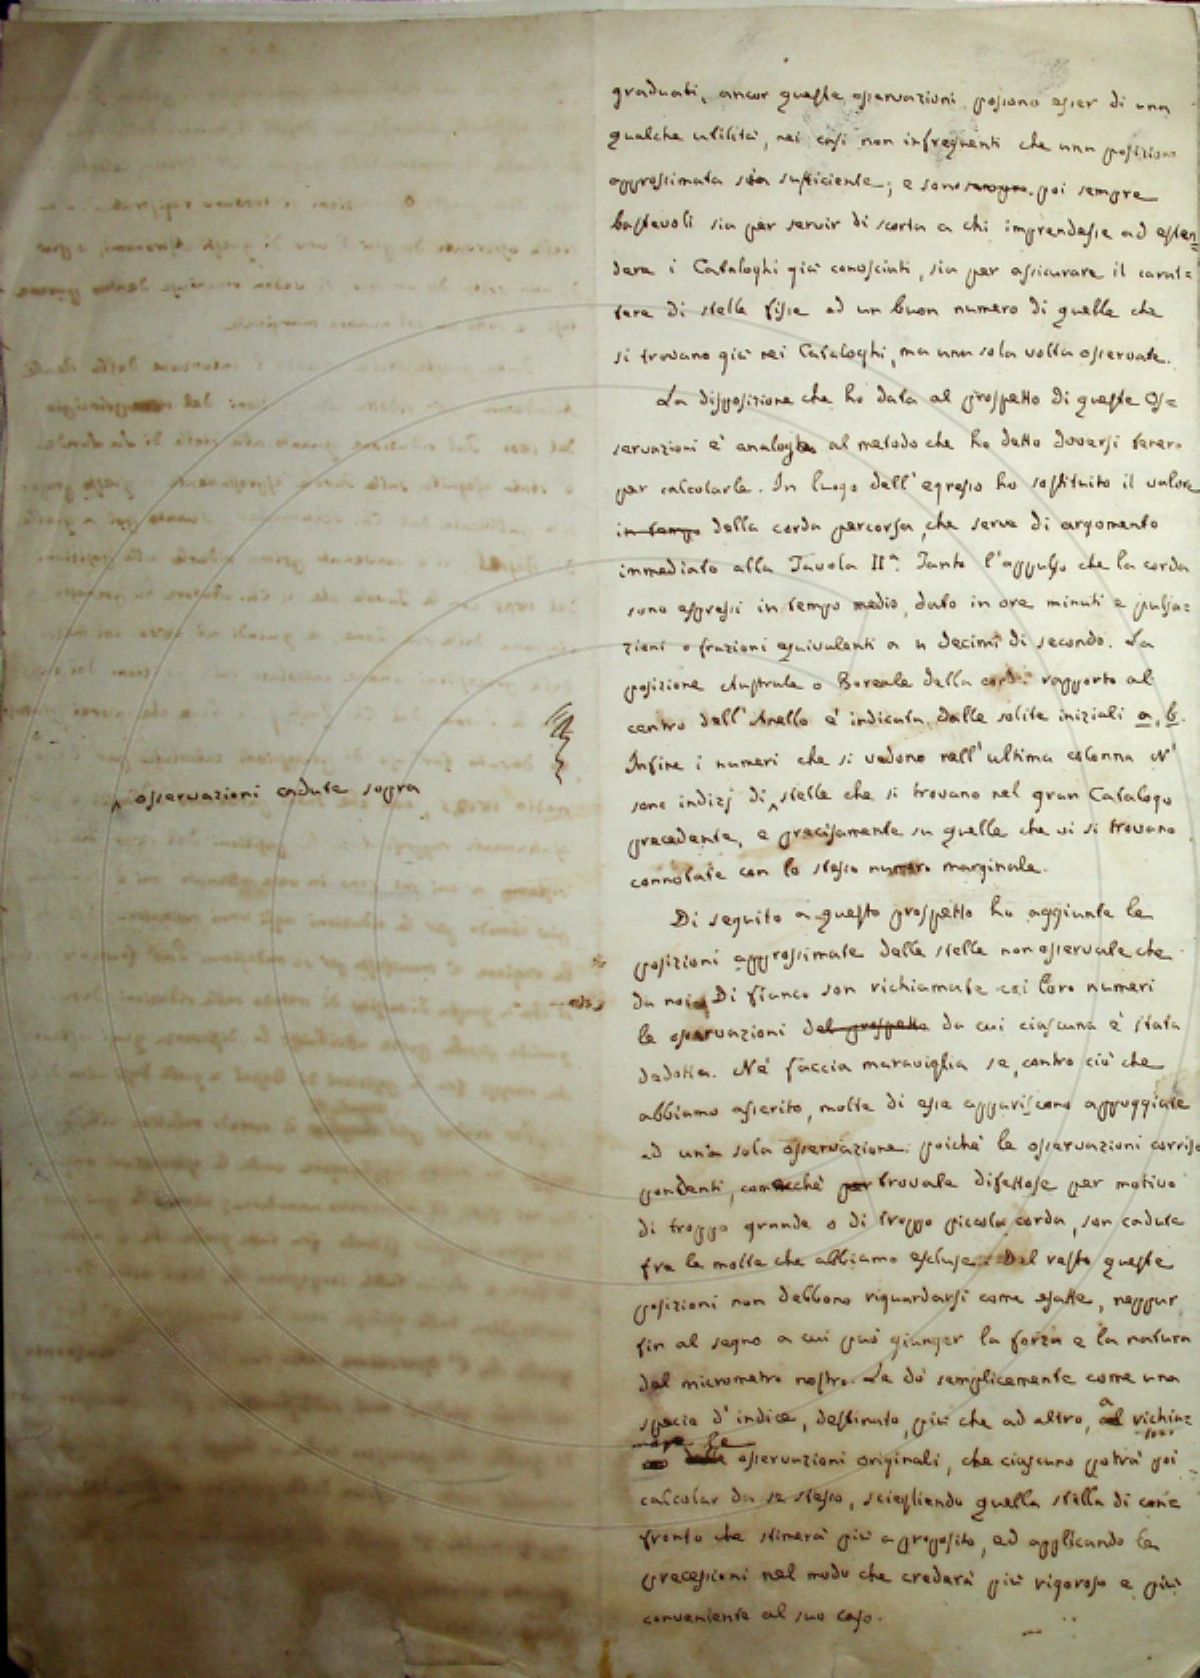 graduati, ancor queste osservazioni possono esser di una
qualche utilità, nei casi non infrequenti che una posizione
approssimata sia sufficiente; e sono sempre poi sempre
bastevoli sia per servir di scorta a chi imprendesse ad esten=
dere i Cataloghi già conosciuti, sia per assicurare il carat=
tere di stelle fisse ad un buon numero di quelle che
si trovano già nei Cataloghi, ma una sola volta osservate.
La disposizione che ho data al prospetto di queste Os=
servazioni è analoga al metodo che ho detto doversi tenere
per calcolarle. In luogo dell'egresso ho sostituito il valore
in tempo della corda percorsa, che serve di argomento
immediato alla Tavola IIª. Tanto l'appulso che la corda
sono espressi in tempo medio, dato in ore minuti e pulsa=
zioni o frazioni equivalenti a 4 decimi di secondo. La
posizione Australe o Boreale della corda rapporto al
centro dell'Anello è indicata dalle solite iniziali a, b.
Infine i numeri che si vedono nell'ultima colonna N'
sono indizj di ^ stelle che si trovano nel gran Catalogo
^ osservazioni cadute sopra
precedente, e precisamente su quelle che vi si trovano
connotate con lo stesso numero marginale.
Di seguito a questo prospetto ho aggiunte le
posizioni approssimate delle stelle non osservate che
da noi. Di fianco son richiamate coi loro numeri
le osservazioni del prospetto da cui ciascuna è stata
dedotta. Nè faccia maraviglia se, contro ciò che
abbiamo asserito, molte di esse appariscono appoggiate
ad una sola osservazione: poichè le osservazioni corris
pondenti, comecchè per trovate difettose per motivo
di troppo grande o di troppo piccola corda, son cadute
fra le molte che abbiamo escluse. Del resto queste
posizioni non debbono riguardarsi come esatte, neppur
fin al segno a cui può giunger la forza e la natura
del micrometro nostro. Le do semplicemente come una
specie d'indice, destinato, più che ad altro, a richia=
mare le osservazioni originali, che ciascuno potrà poi
calcolar da se stesso, sciegliendo quella stella di con=
fronto che stimerà più a proposito, ed applicando le
precessioni nel modo che crederà più rigoroso e più
conveniente al suo caso.